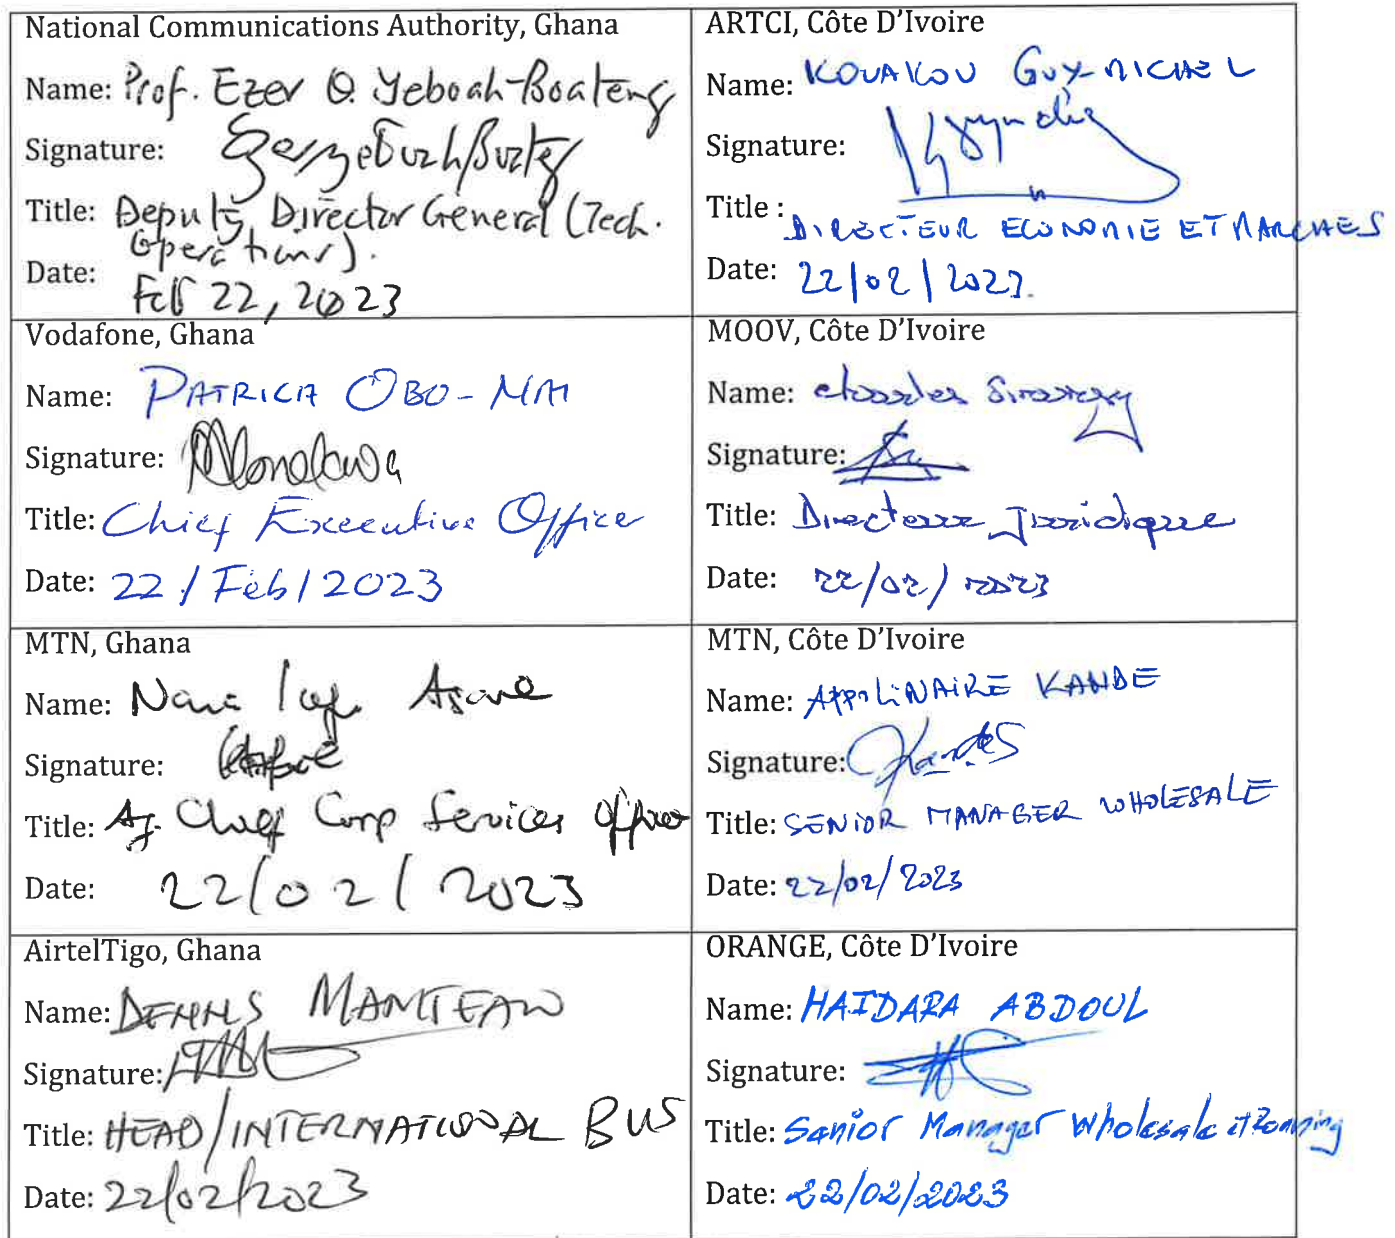 National Communications Authority, Ghana
Name: Prof. Ezer O. Yeboah-Boateng
Signature:
Title: Deputy Director General (Tech.
Operations).
Date: Feb 22, 2023
ARTCI, Côte D'Ivoire
Name: KOUAKOU GUY-MICHEL
Signature:
Title : DIRECTEUR ECONOMIE ET MARCHES
Date: 22/02/2023.
Vodafone, Ghana
Name: PATRICIA OBO-NAI
Signature:
Title: Chief Executive Office
Date: 22/Feb/2023
MOOV, Côte D'Ivoire
Name:
Signature:
Title: Directeur Juridique
Date: 22/02/2023
MTN, Ghana
Name: Nana Asare
Signature:
Title: Ag. Chief Corp Services Officer
Date: 22/02/2023
MTN, Côte D'Ivoire
Name: APPOLINAIRE KANDE
Signature:
Title: SENIOR MANAGER WHOLESALE
Date: 22/02/2023
AirtelTigo, Ghana
Name: DENNIS MANTEAW
Signature:
Title: HEAD/INTERNATIONAL BUS
Date: 22/02/2023
ORANGE, Côte D'Ivoire
Name: HAIDARA ABDOUL
Signature:
Title: Senior Manager Wholesale et Roaming
Date: 22/02/2023